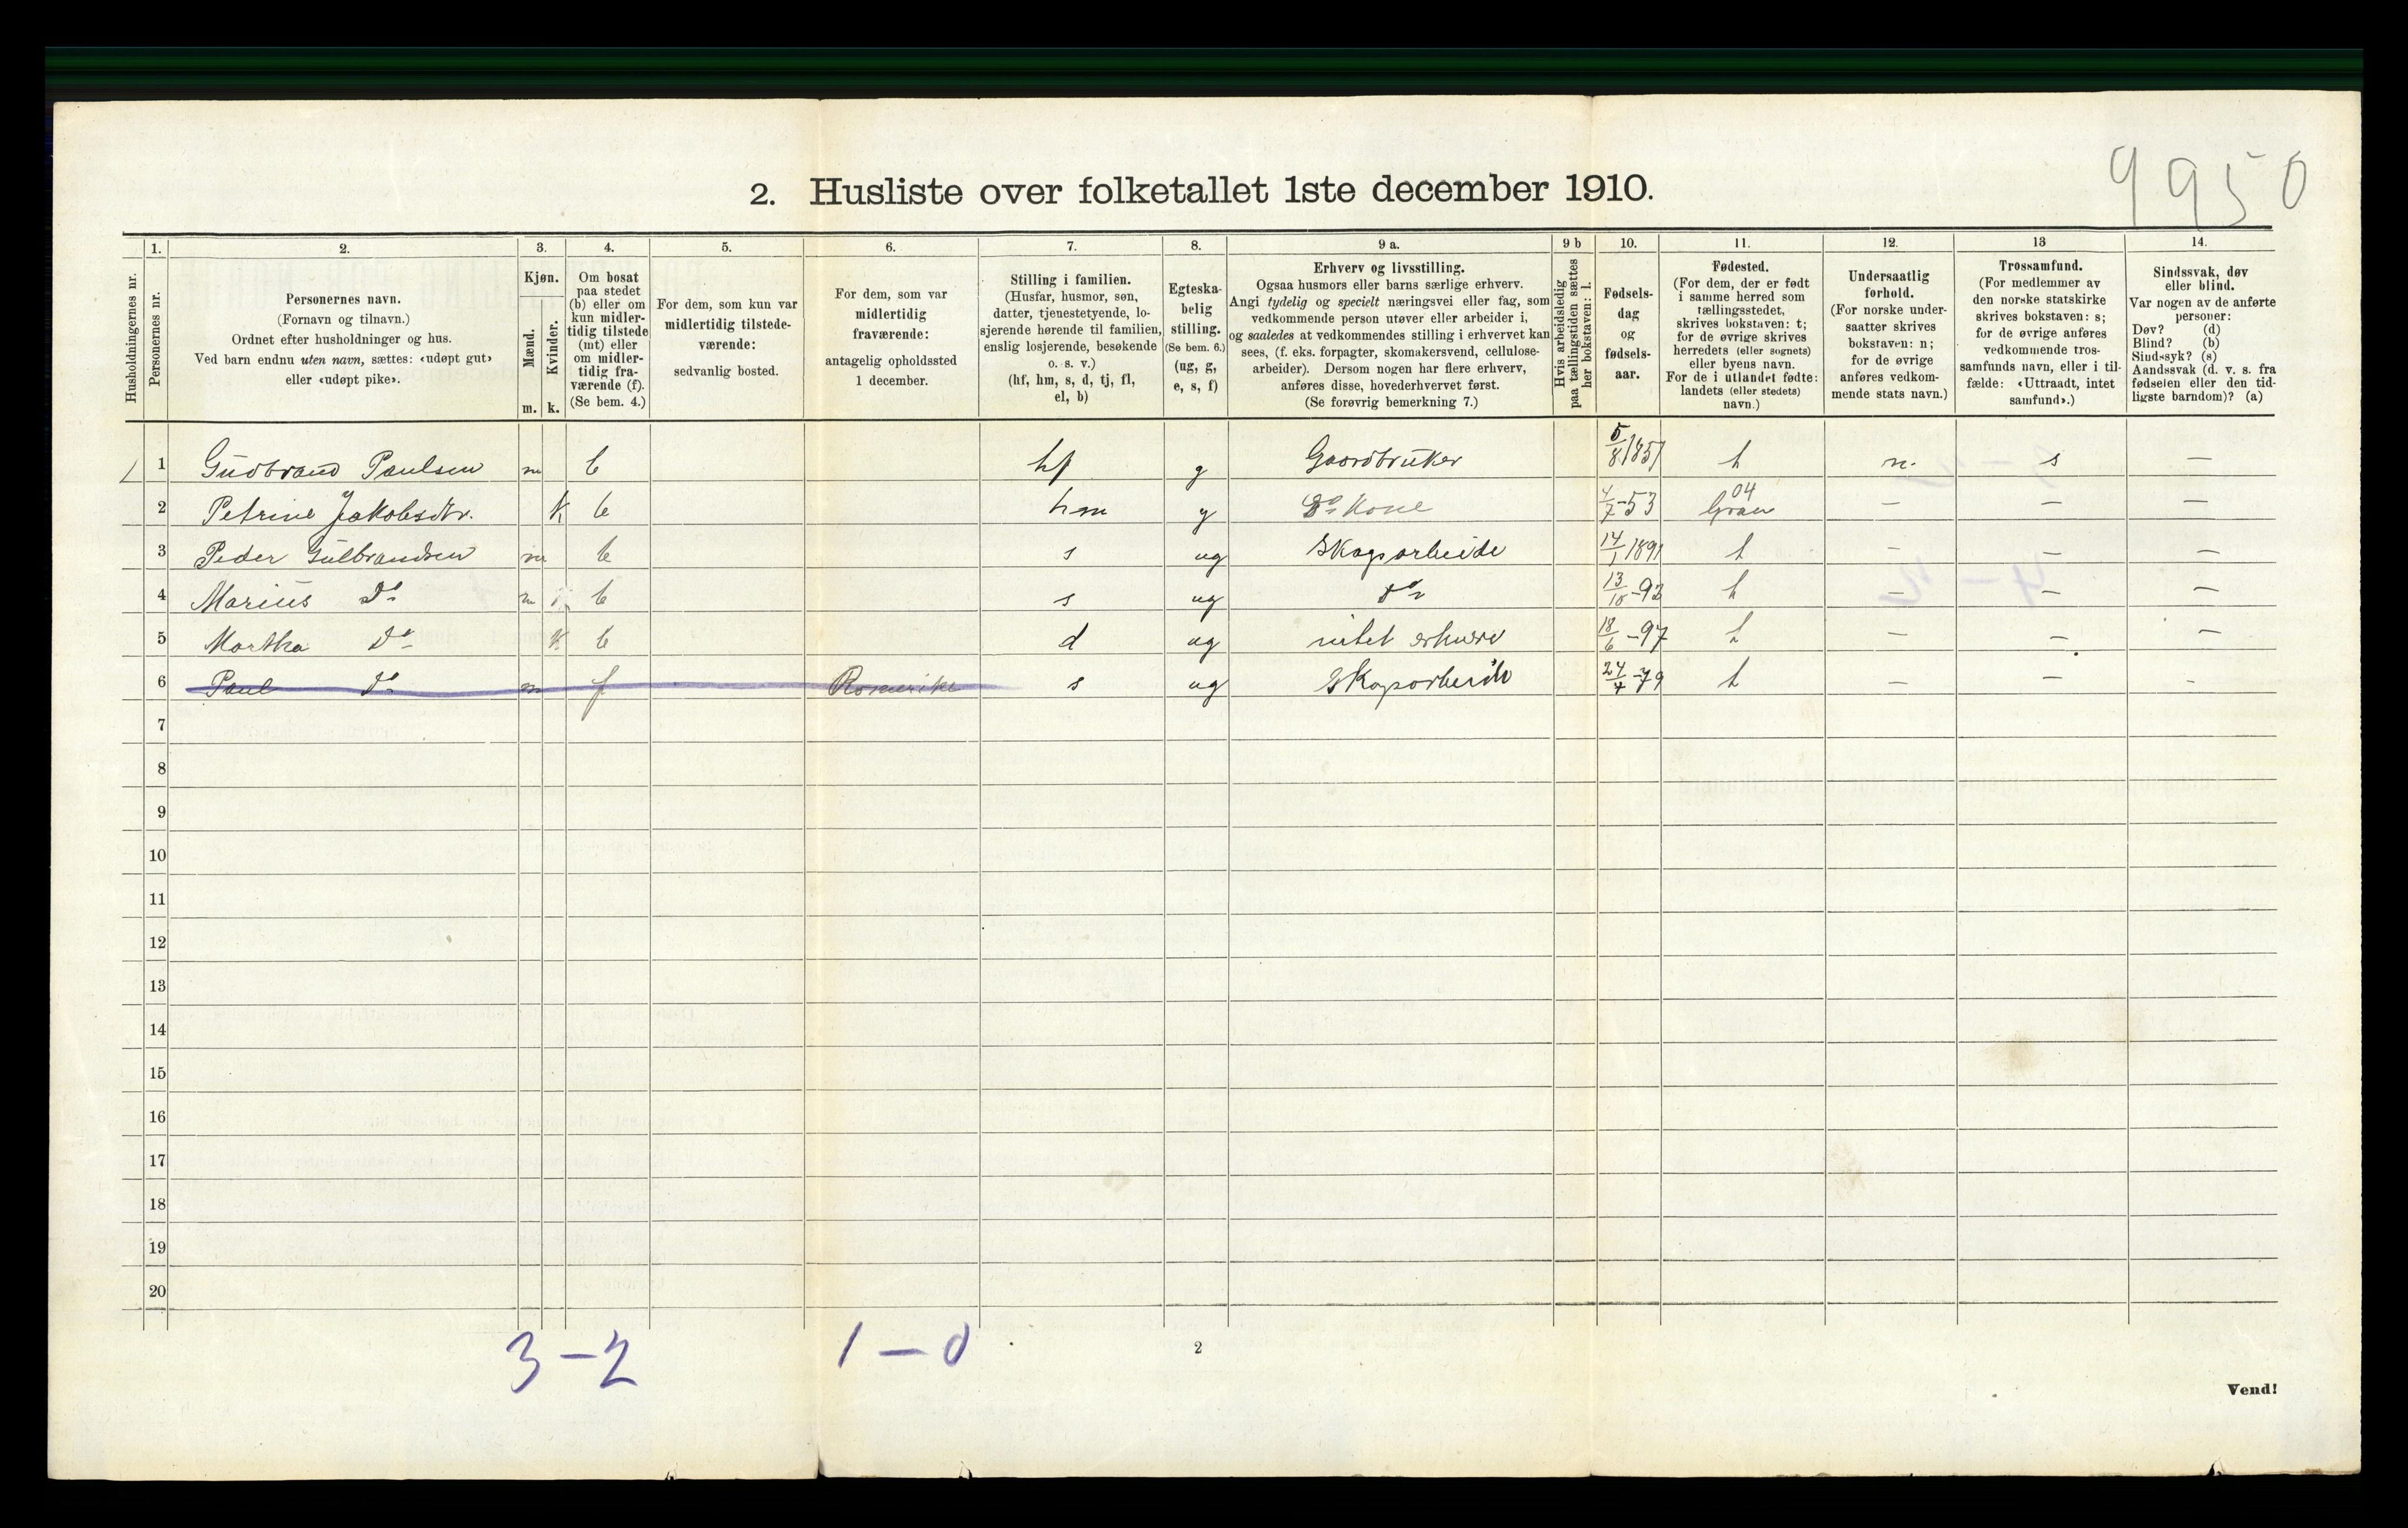 9950
2. Husliste over folketallet 1ste december 1910.
Husholdningernes nr.
1.
Personernes nr.
2.
Personernes navn.
(Fornavn og tilnavn.)
Ordnet efter husholdninger og hus.
Ved barn endnu uten navn, sættes: «udøpt gut»
eller «udøpt pike».
3.
Kjøn.
Mænd.
Kvinder.
m. k.
4.
Om bosat
paa stedet
(b) eller om
kun midler-
tidig tilstede
(mt) eller
om midler-
tidig fra-
værende (f).
(Se bem. 4.)
5.
For dem, som kun var
midlertidig tilstede-
værende:
sedvanlig bosted.
6.
For dem, som var
midlertidig
fraværende:
antagelig opholdssted
1 december.
7.
Stilling i familien.
(Husfar, husmor, søn,
datter, tjenestetyende, lo-
sjerende hørende til familien,
enslig losjerende, besøkende
o. s. v.)
(hf, hm, s, d, tj, fl,
el, b)
8.
Egteska-
belig
stilling.
(Se bem. 6.)
(ug, g,
e, s, f)
9 a.
Erhverv og livsstilling.
Ogsaa husmors eller barns særlige erhverv.
Angi tydelig og specielt næringsvei eller fag, som
vedkommende person utøver eller arbeider i,
og saaledes at vedkommendes stilling i erhvervet kan
sees, (f. eks. forpagter, skomakersvend, cellulose-
arbeider). Dersom nogen har flere erhverv,
anføres disse, hovederhvervet først.
(Se forøvrig bemerkning 7.)
9 b
Hvis arbeidsledig
paa tællingstiden sættes
her bokstaven: l.
10.
Fødsels-
dag
og
fødsels-
aar.
11.
Fødested.
(For dem, der er født
i samme herred som
tællingsstedet,
skrives bokstaven: t;
for de øvrige skrives
herredets (eller sognets)
eller byens navn.
For de i utlandet fødte:
landets (eller stedets)
navn.)
12.
Undersaatlig
forhold.
(For norske under-
saatter skrives
bokstaven: n;
for de øvrige
anføres vedkom-
mende stats navn.)
13
Trossamfund.
(For medlemmer av
den norske statskirke
skrives bokstaven: s;
for de øvrige anføres
vedkommende tros-
samfunds navn, eller i til-
fælde: «Uttraadt, intet
samfund».)
14.
Sindssvak, døv
eller blind.
Var nogen av de anførte
personer:
Døv? (d)
Blind? (b)
Sindssyk? (s)
Aandssvak (d. v. s. fra
fødselen eller den tid-
ligste barndom)? (a)
1 1 Gudbrand Paulsen m b hf g Gaardbruker 5/8 1851 t n. s —
2 Petrine Jakobsdtr. k b hm g Do Kone 4/7 -53 Gran 04 — — —
3 Peder Gulbrandsen m b s ug Skogsarbeide 14/1 1891 t — — —
4 Marius Do m b s ug Do 13/10 -93 t — — —
5 Martha Do k b d ug intet erhverv 18/6 -97 t — — —
6 Paul Do m f Romerike s ug Skogsarbeide 24/4 -79 t — — -
7
8
9
10
11
12
13
14
15
16
17
18
19
20
3 – 2 1 – 0
2
Vend!